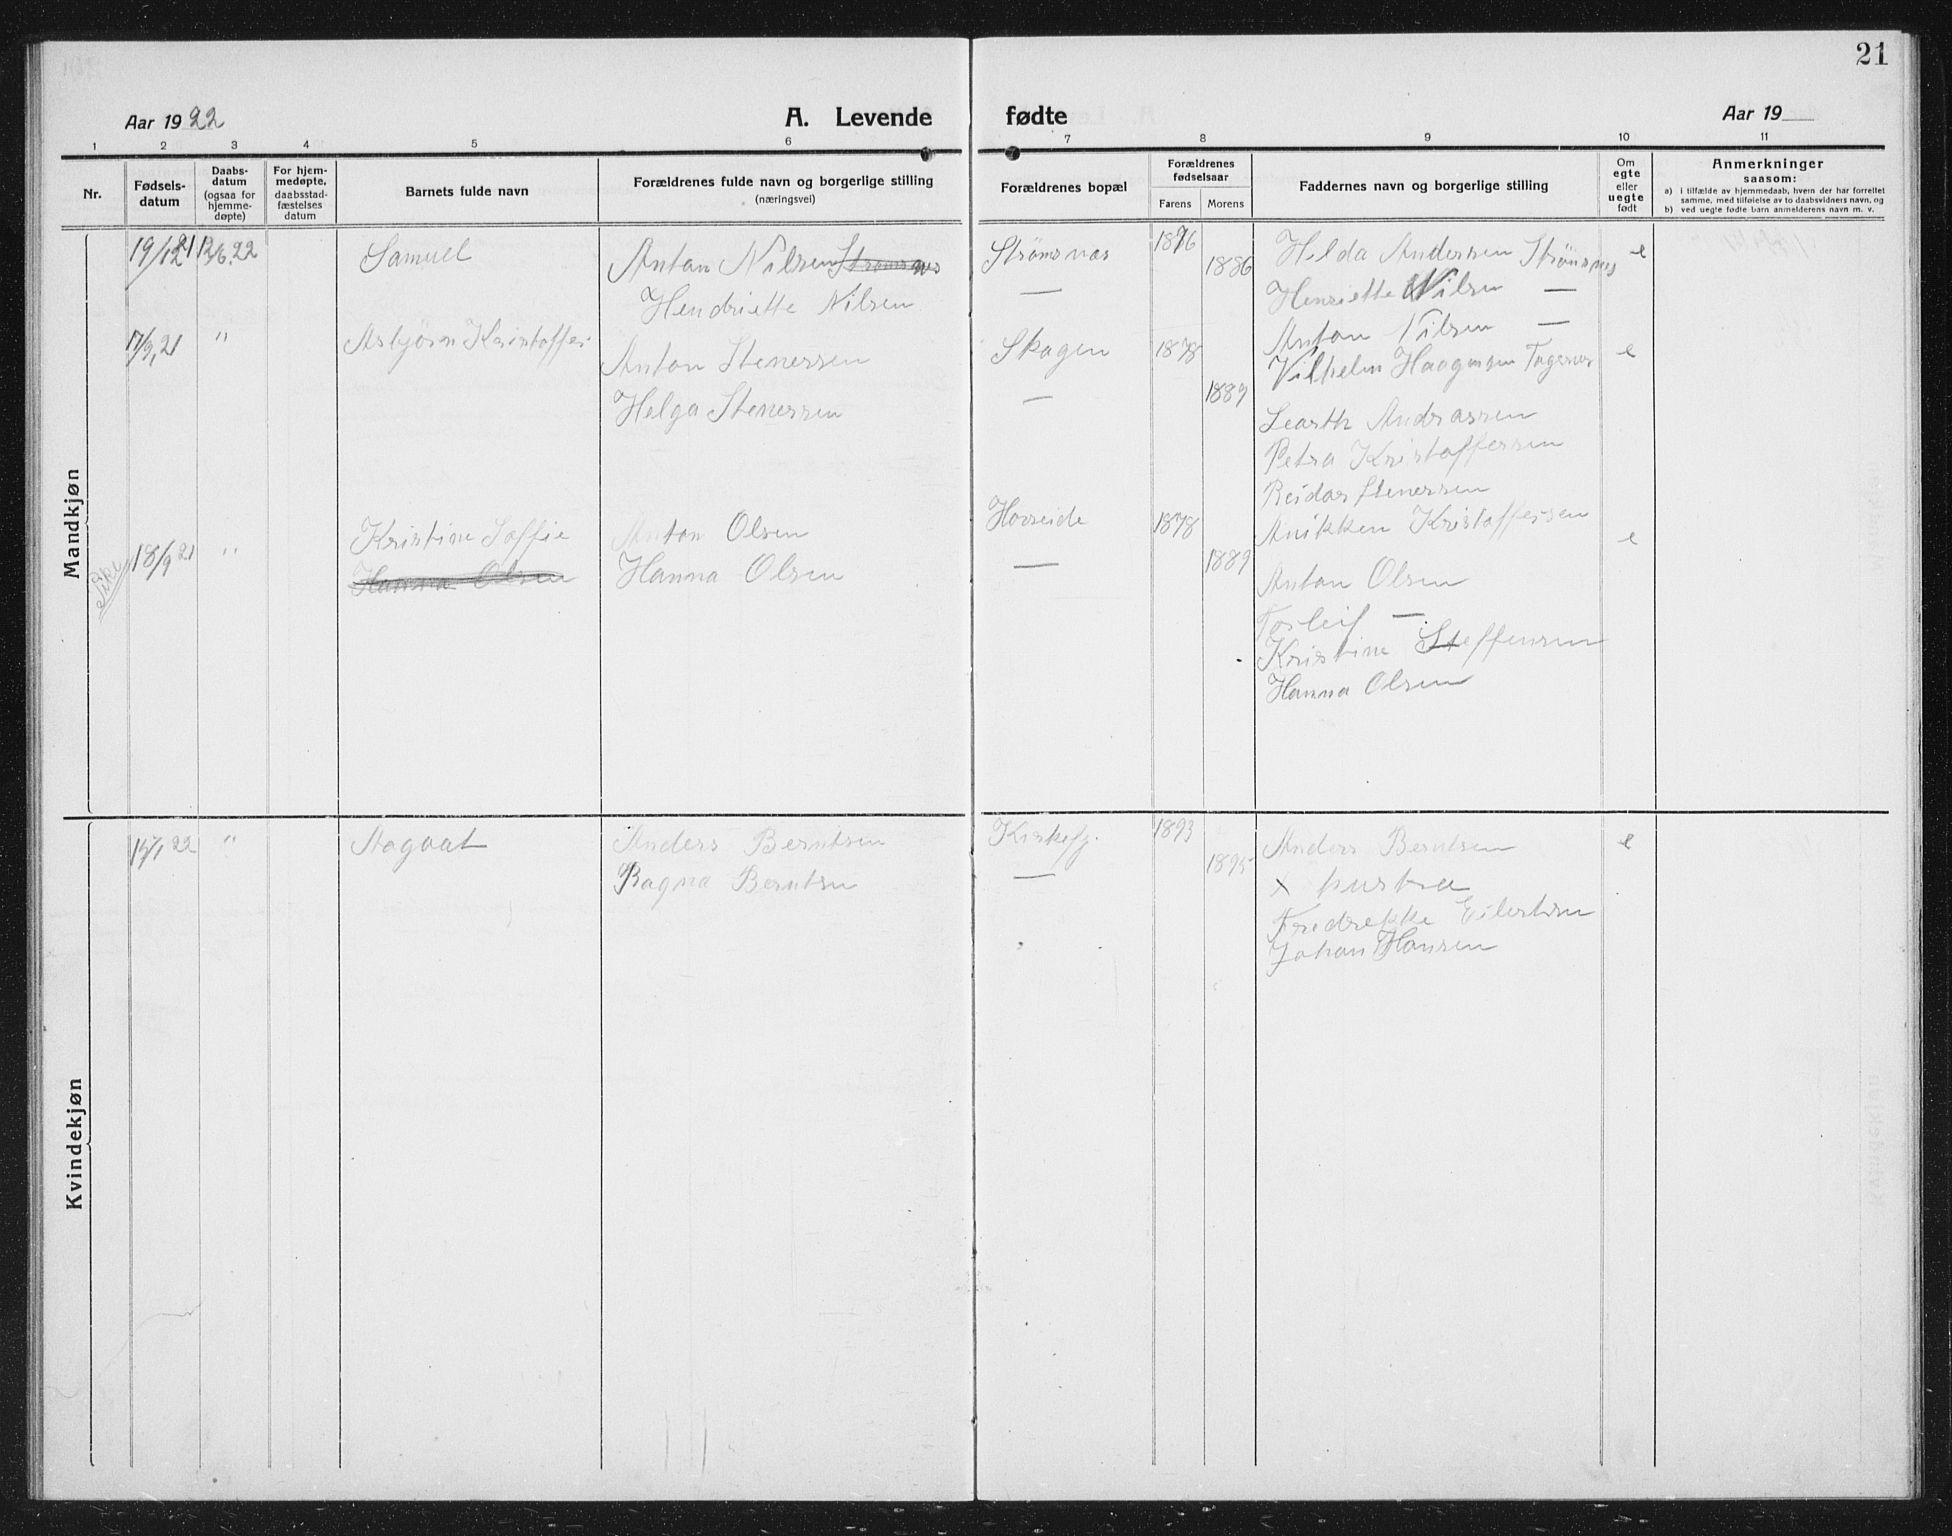 21
Aar 1922 A. Levende fødte Aar 19
1 2 3 4 5 6 7 8 9 10 11
Nr.
Fødsels-
datum
Daabs-
datum
(ogsaa for
hjemme-
døpte)
For hjem-
medøpte,
daabsstad-
fæstelses
datum
Barnets fulde navn
Forældrenes fulde navn og borgerlige stilling
(næringsvei)
Forældrenes bopæl
Forældrenes
fødselsaar
Farens Morens
Faddernes navn og borgerlige stilling
Om
egte
eller
uegte
født
Anmerkninger
saasom:
a) i tilfælde av hjemmedaab, hvem der har forrettet
samme, med tilføielse av to daabsvidners navn, og
b) ved uegte fødte barn anmelderens navn m. v.
Mandkjøn
19/12 21 12/6.22 Samuel Anton Nilsen Strømsnes Strømsnæs 1876 Helda Andersen Strømsnes e
Hendriette Nilsen — 1886 Henriette Nilsen —
Anton Nilsen —
17/9,21 " Asbjørn Kristoffer Anton Stenersen Skagen 1878 Vilhelm Haagensen Fagernes e
Helga Stenersen — 1889 Andrassen
Petra Kristoffersen
Reidar Stenersen
Anikken Kristoffersen
Pike 18/9 21 " Kristine Soffie Anton Olsen Hovreide 1878 e
Hanna Olsen Hanna Olsen — 1889 Anton Olsen
Torleif —
Kristine Steffensen
Hanna Olsen
Kvindekjøn
15/1 22 " Aagaat Anders Berntsen Kirkefj. 1893 Anders Berntsen e
Ragna Berntsen — 1895 x hustra
Fredrekke Eilertsen
Johan Hansen